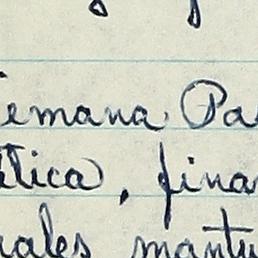 emana Pa
ática, fina
uales mantu